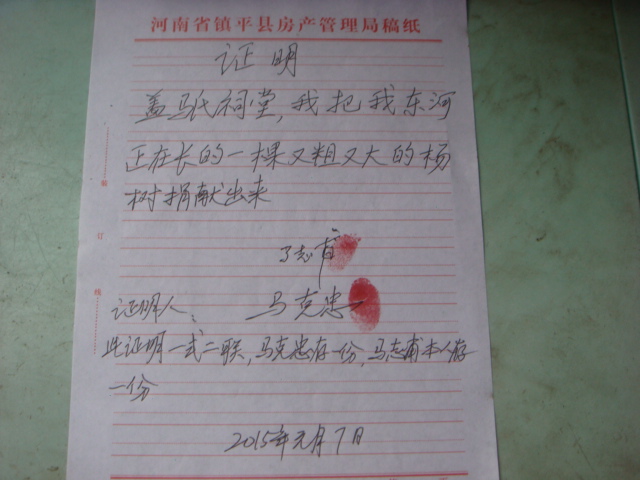 河南省镇平县房产管理局稿纸
证明
盖马氏祠堂，我把我东河
正在长的一棵又粗又大的杨
树捐献出来
马志甫
证明人： 马克忠
此证明一式二联，马克忠存一份，马志甫本人存
一份
2015年元月7日
装
订
线